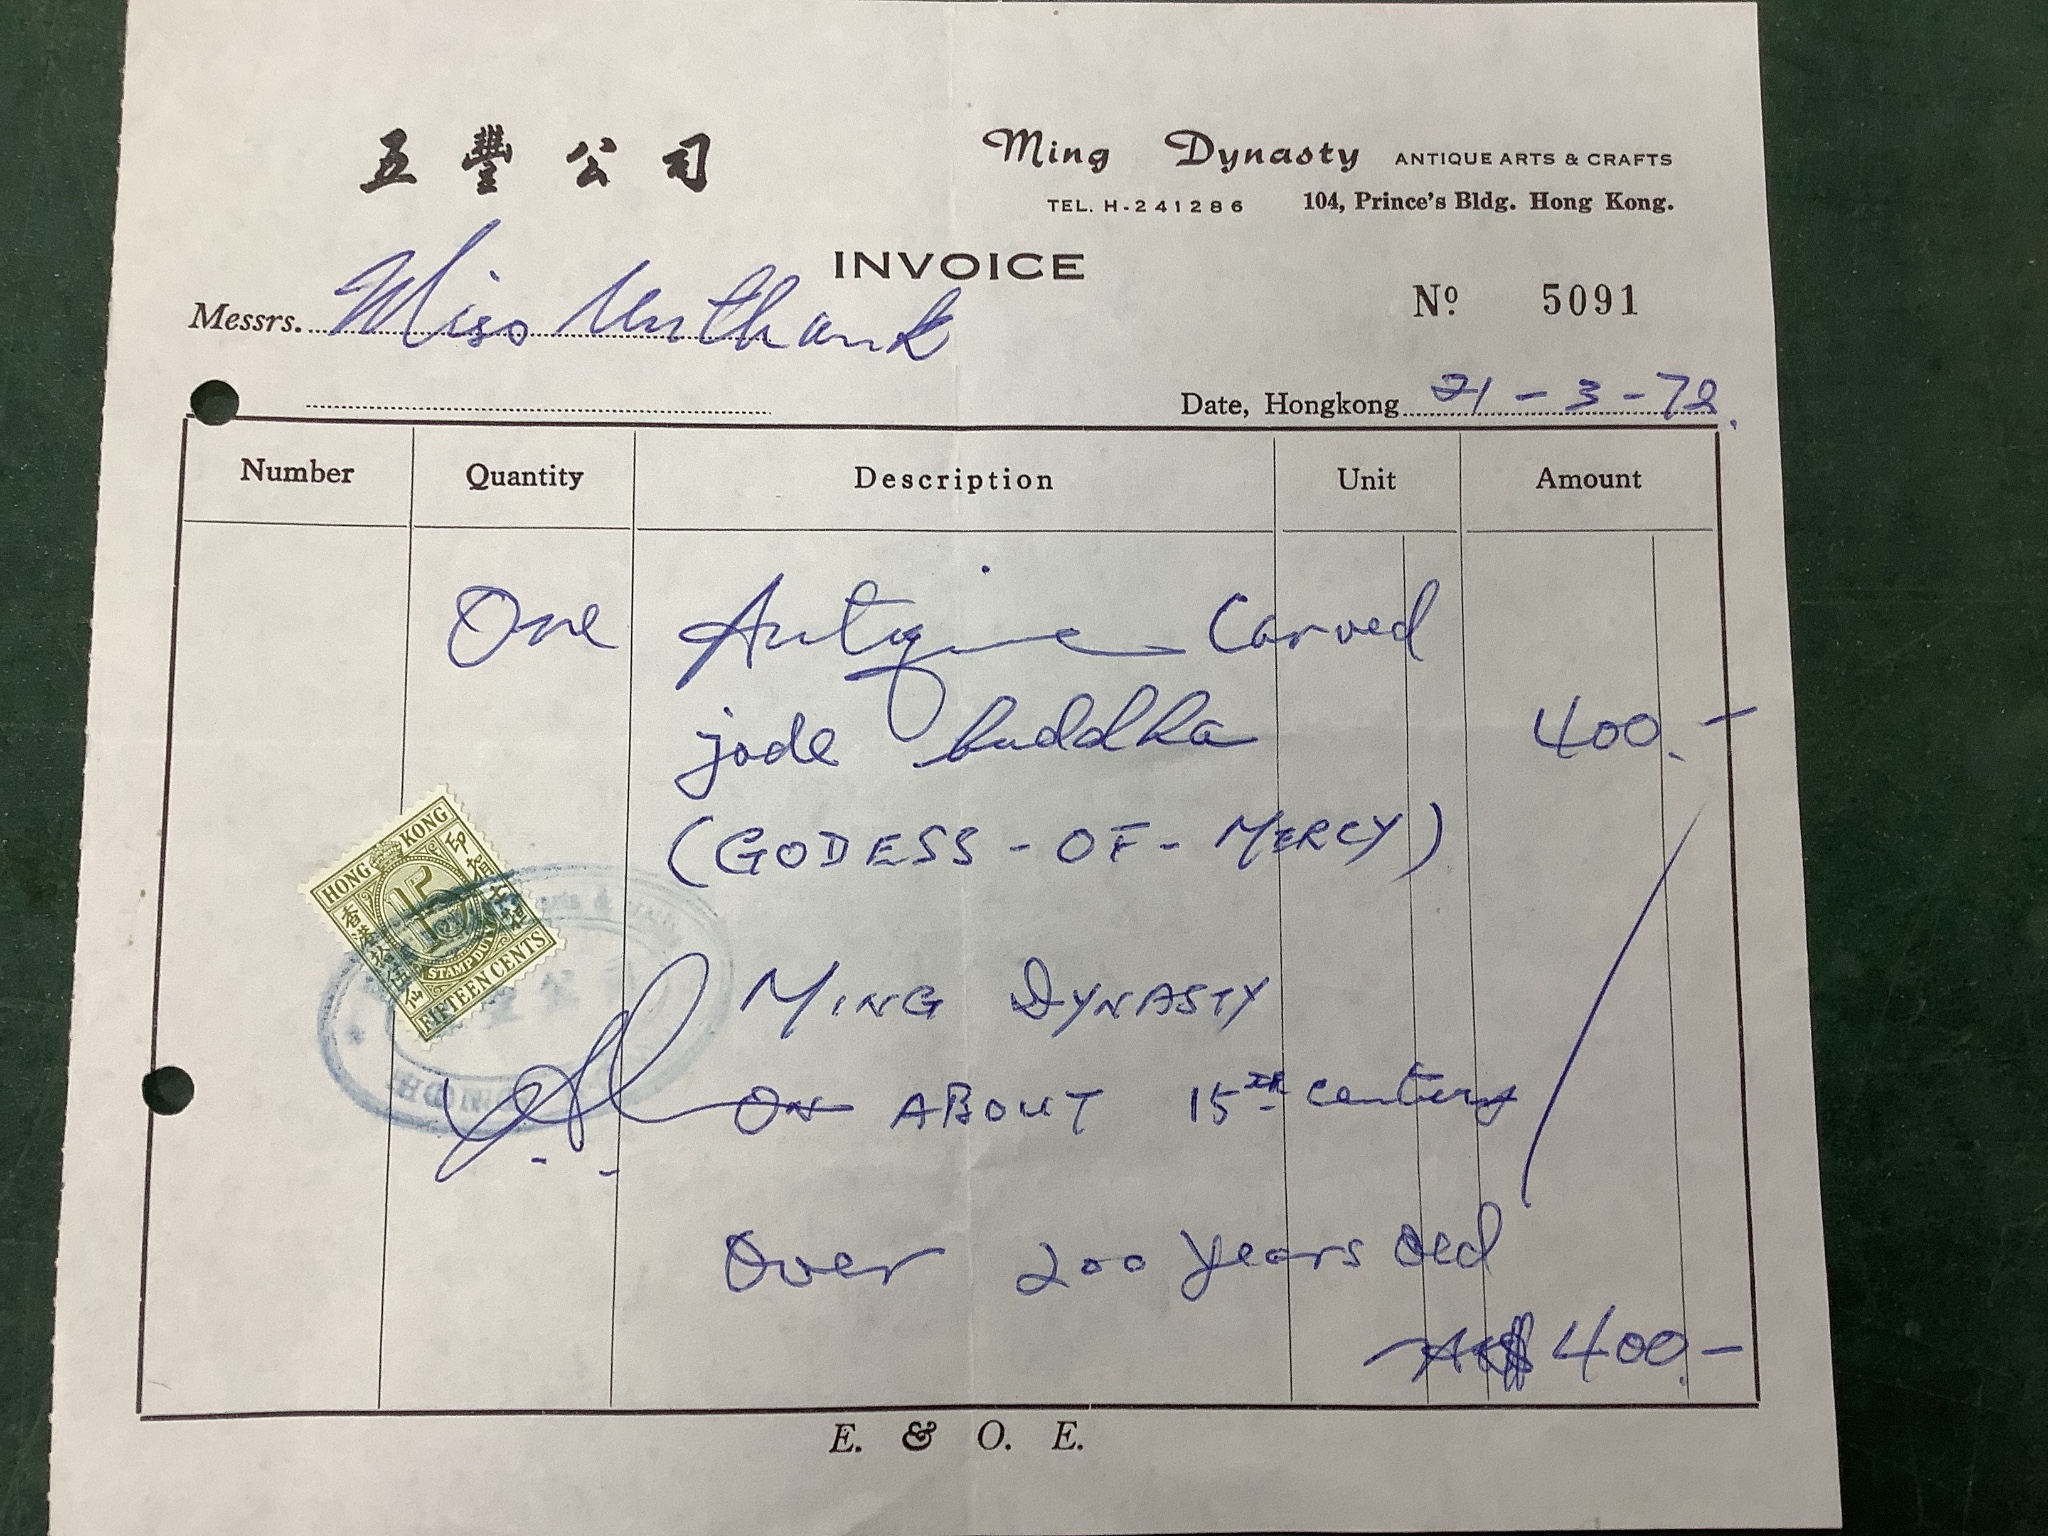 五豐公司
Ming Dynasty ANTIQUE ARTS & CRAFTS
TEL. H-241286 104, Prince's Bldg. Hong Kong.
INVOICE
Messrs. Miss Unthank
Nº 5091
Date, Hongkong 21-3-72.
Number Quantity Description Unit Amount
One Antique Carved
jade buddha 400.-
(GODESS-OF-MERCY)
HONG KONG
15
STAMP DUTY
FIFTEEN CENTS
香港
MING DYNASTY
ON ABOUT 15TH century
Over 200 years old
HK$ 400.-
E. & O. E.